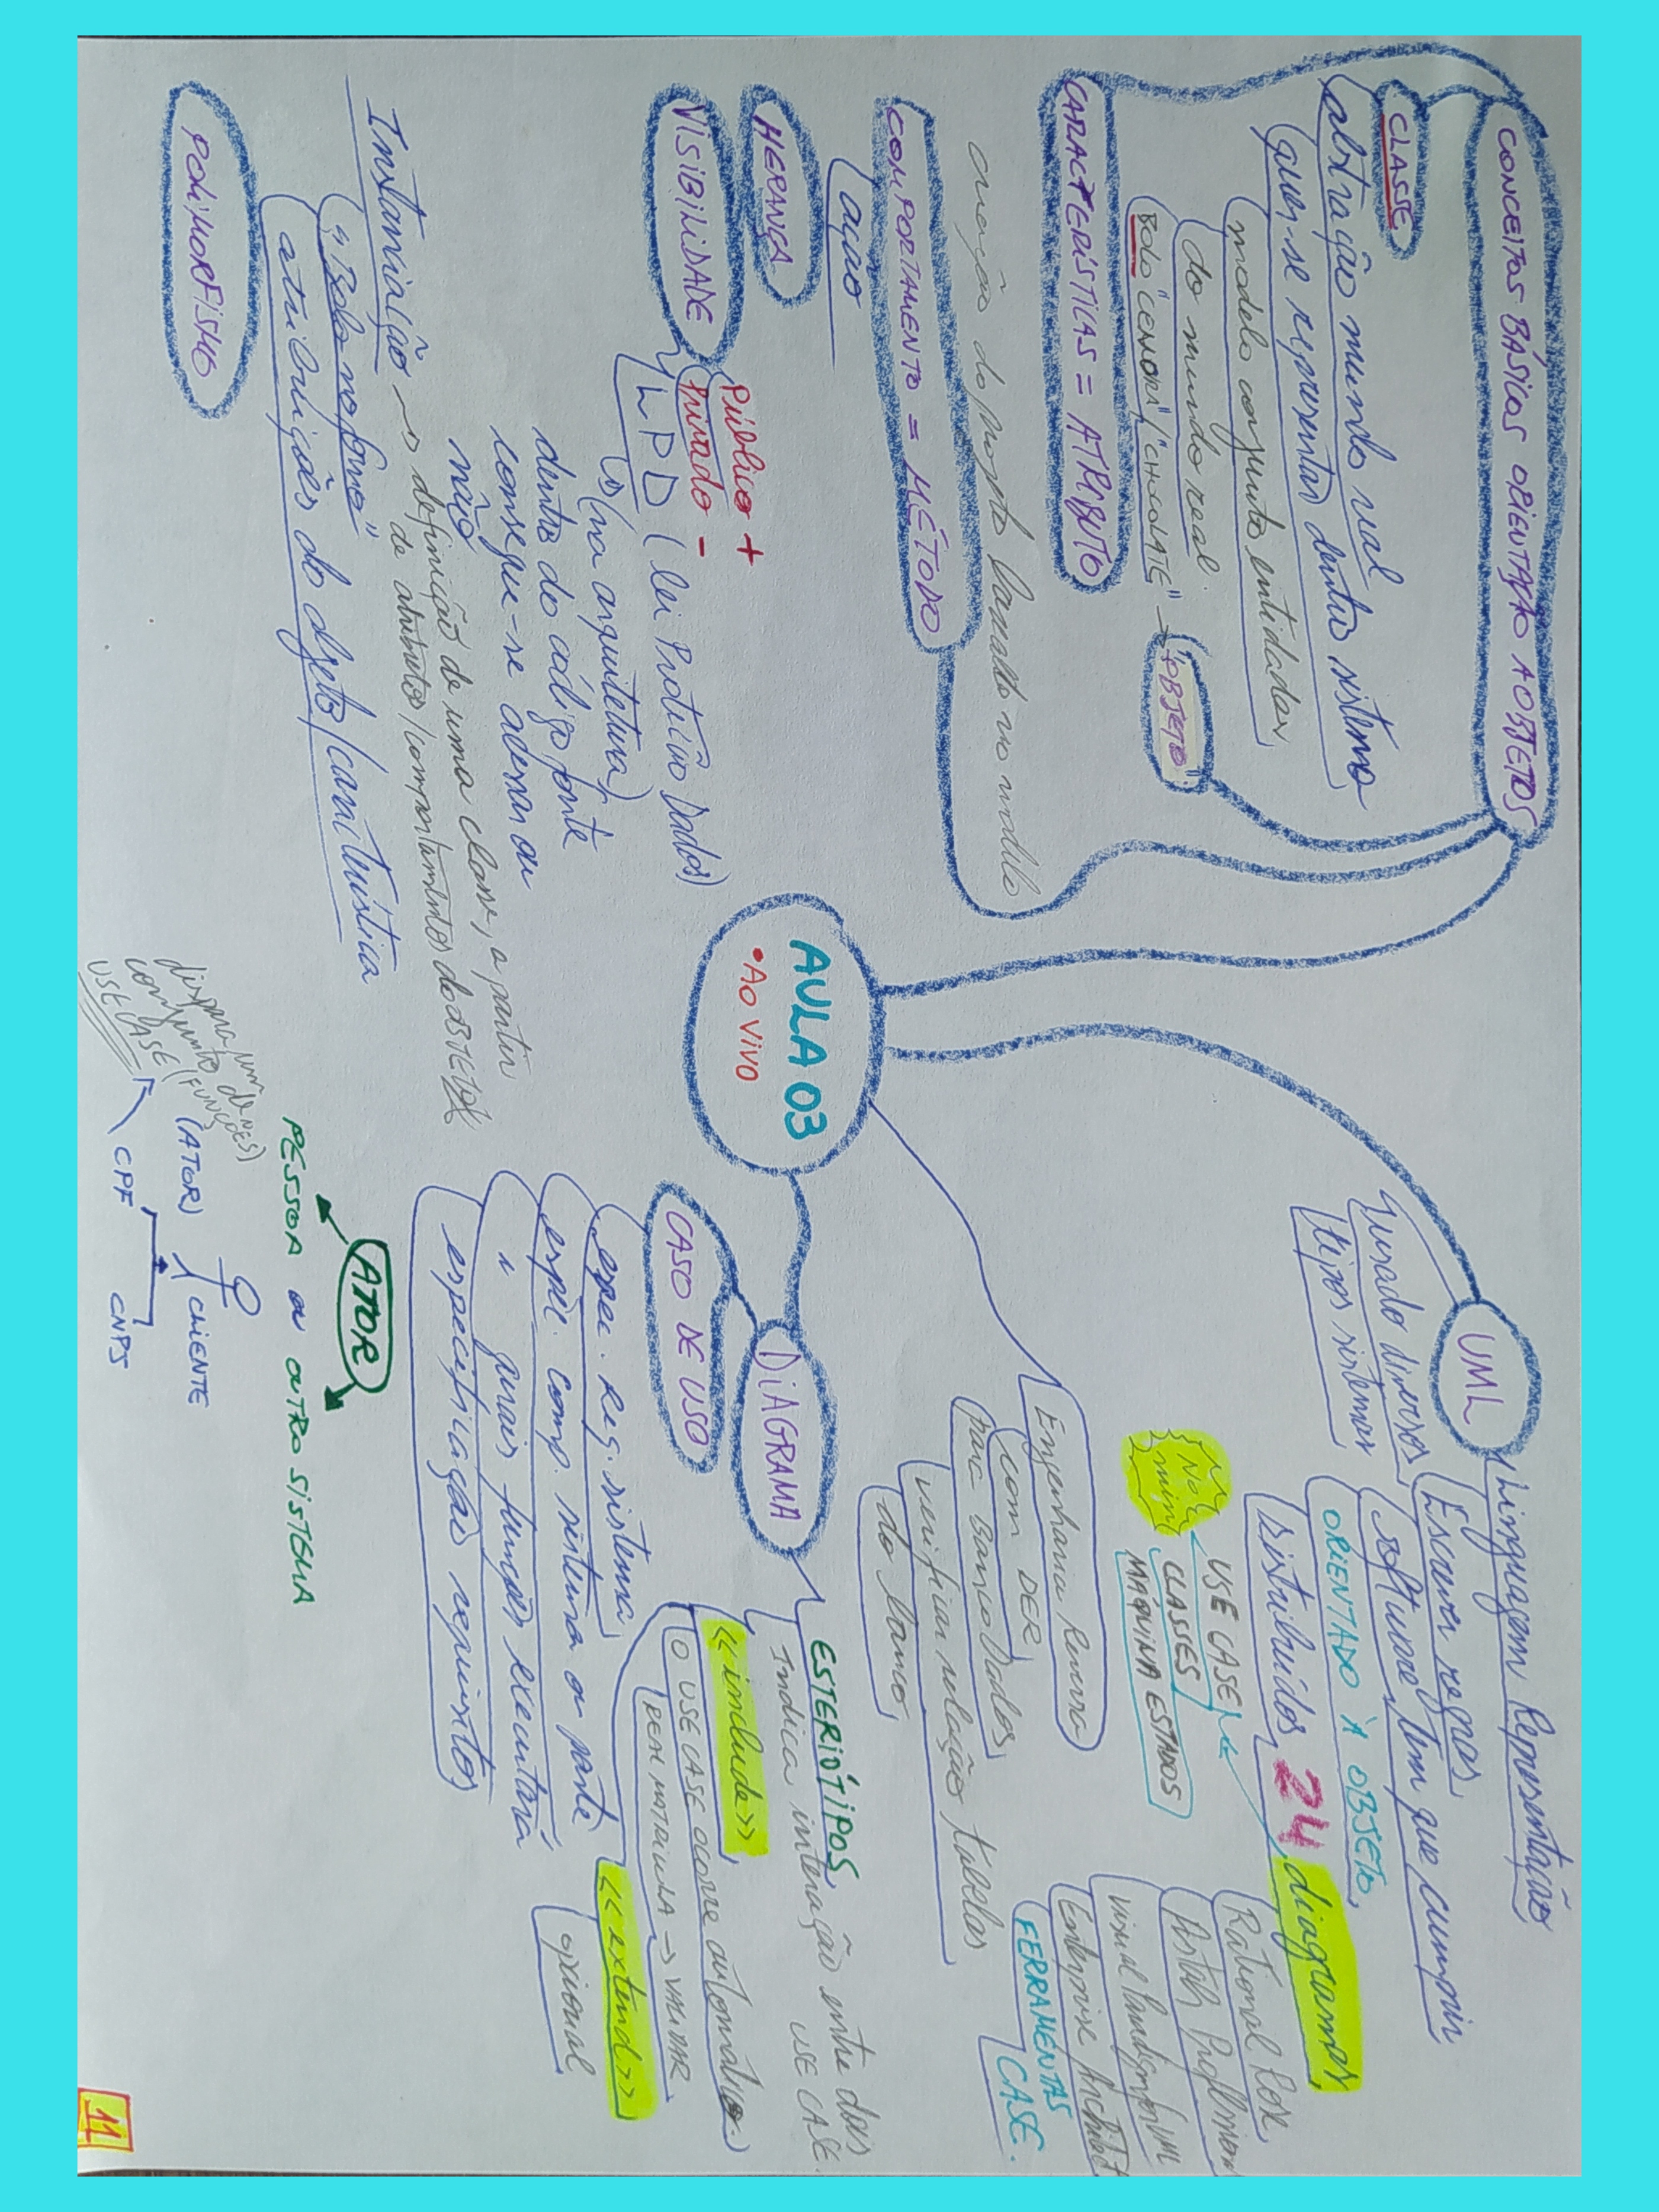 CONCEITOS BÁSICOS ORIENTAÇÃO A OBJETOS
CLASSE
abstração mundo real
quer-se representar dentro sistema
modelo conjunto entidades
do mundo real.
BOLO "CENOURA"/"CHOCOLATE" → "OBJETO"
CARACTERÍSTICAS = ATRIBUTO
criação do projeto baseado no modelo
COMPORTAMENTO = MÉTODO
ação
HERANÇA
VISIBILIDADE
Público +
Privado -
LPD (lei Proteção Dados)
↳ (na arquitetura)
dentro do código fonte
consegue-se acessar ou
não
Instanciação → definição de uma classe, a partir
de atributos/comportamentos do OBJETO
"Bolo no forno"
atribuições do objeto/característica
POLIMORFISMO
AULA 03
•AO VIVO
UML
Linguagem Representação
Escrever regras
software tem que cumprir
ORIENTADO À OBJETO
Distribuídos 24 diagramas
usado diversos
tipos sistemas
No
min
USE CASE
CLASSES
MÁQUINA ESTADOS
Rational Rose
Astah Professional
Visual Paradigm for UML
Enterprise Architect
FERRAMENTAS
CASE.
Engenharia Reversa
com DER
para Banco Dados
verificar relação tabelas
do banco
DIAGRAMA
CASO DE USO
espec. Req. sistema
espec. comp. sistema ou parte
" quais funções executará
especificação requisitos
ESTERIÓTIPOS
Indica interação entre dois
USE CASE.
<<include>>
O USE CASE OCORRE automático.
REAL MATRICULA → VALIDAR
<<extend>>
opcional
ATOR
PESSOA ou OUTRO SISTEMA
dispara um
conjunto de
USE CASE (FUNÇÕES)
(ATOR) CLIENTE
CPF CNPJ
11